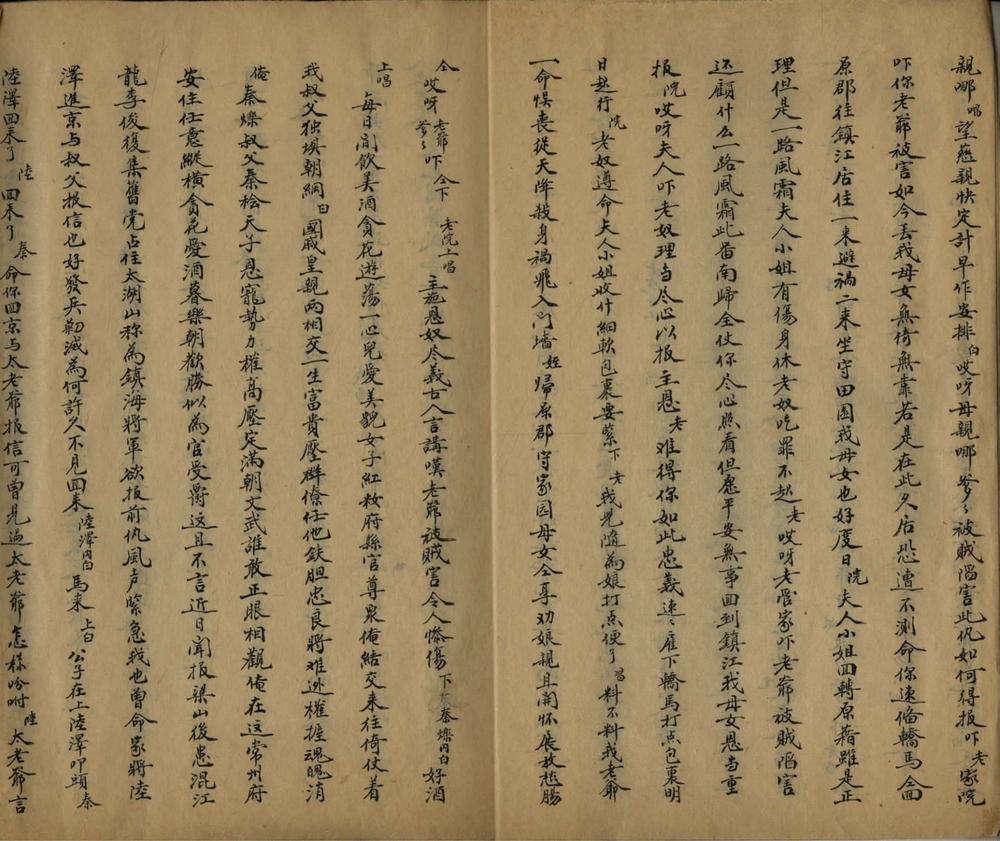 親哪唱望慈親快定計早作安排白哎呀母親哪爹〻被賊陷害此仇如何得报吓老家院
吓你老爺被害如今丢我母女無倚無靠若是在此久后恐遭不測命你速備轎馬仝回
原郡往鎮江居住一来避禍二来坐守田园我母女也好度日院夫人小姐回轉原藉雖是正
理但是一路風霜夫人小姐有傷身休老奴吃罪不起老哎呀老管家吓老爺被賊陷害
还顧什么一路風霜此番南歸全仗你尽心照看但愿平安無事回到鎮江我母女恩当重
报院哎呀夫人吓老奴理当尽心以报主恩老难得你如此忠義速〻雇下轎馬打点包裹明
日起行院老奴遵命夫人小姐收什細軟包裹要緊下老我児隨為娘打点便了唱料不料我老爺
一命悮喪從天降殺身禍飛入门墙姪歸原郡守家园母女仝享劝娘親且開怀展放愁腸
仝哎呀老爺爹〻吓仝下老院上唱主施恩奴尽義古人言講嘆老爺被賊害令人惨傷下秦燦内白好酒
上唱每日间飲美酒貪花遊蕩一心児愛美貌女子紅粧府縣官尊众俺結交来往倚仗着
我叔父独埧朝綱白國戚皇親两相交一生富貴壓群僚任他鉄胆忠良將难逃權握魂魄消
俺秦燦叔父秦桧天子恩寵势力權高壓定滿朝文武誰敢正眼相觀俺在这常州府
安住任意縱横貪花愛酒暮樂朝歡勝似為官受爵这且不言近日聞报梁山後患混江
龍李俊復集舊党占住太湖山称為鎮海將軍欲报前仇風声緊急我也曾命家將陸
澤進京与叔父报信也好發兵勦滅為何許久不見回来陸澤内白馬来上白公子在上陸澤叩頭秦
陸澤回来了陸回来了秦命你回京与太老爺报信可曾見過太老爺怎樣吩咐陸太老爺言